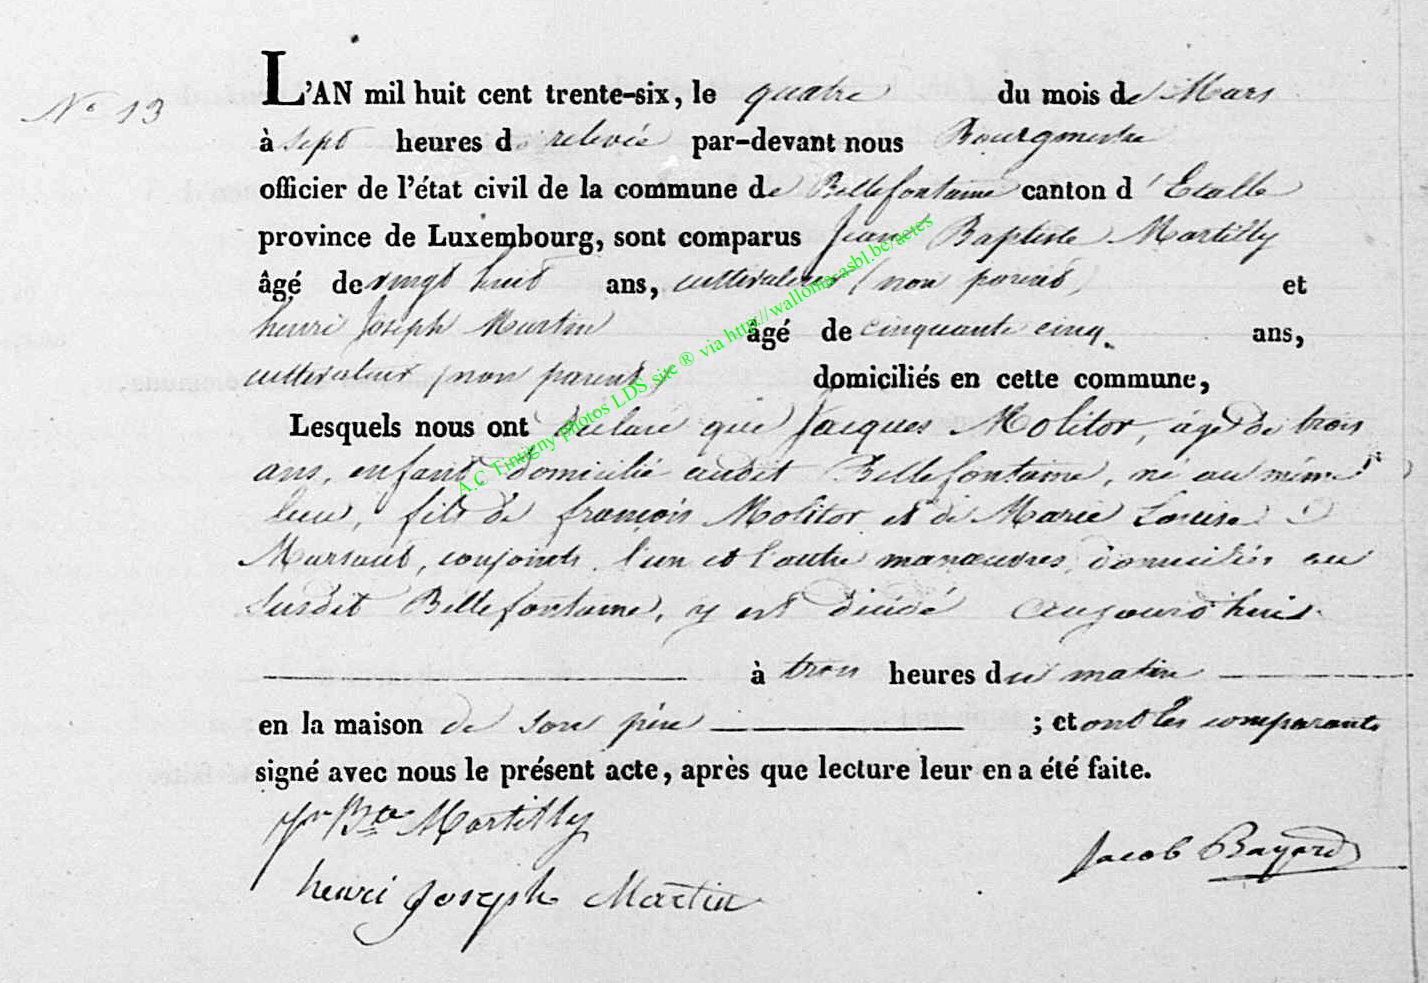 N° 13
L'AN mil huit cent trente-six, le quatre du mois de Mars
à sept heures de relevée par-devant nous Bourgmestre
officier de l'état civil de la commune de Bellefontaine canton d'Etalle
province de Luxembourg, sont comparus Jean Baptiste Martilly
âgé de vingt huit ans, cultivateur (non parent) et
henri Joseph Martin âgé de cinquante cinq ans,
cultivateur (non parent) domiciliés en cette commune,
Lesquels nous ont déclaré que Jacques Molitor, âgé de trois
ans, enfant domicilié audit Bellefontaine, né au même
lieu, fils de françois Molitor et de Marie Louise
conjoints, l'un et l'autre manœuvres, domiciliés au
susdit Bellefontaine, y est décédé aujourd'hui
à trois heures du matin
en la maison de son père ; et ont les comparants
signé avec nous le présent acte, après que lecture leur en a été faite.
Jn Bte Martilly
Jacob Bayard
henri Joseph Martin
A.C Tintigny photos LDS site ® via http://wallonia-asbl.be/actes